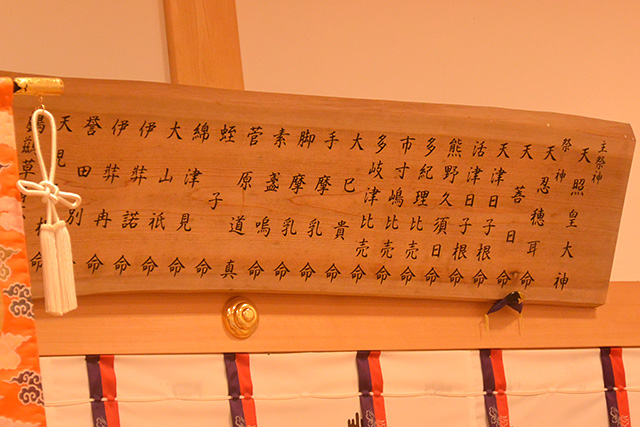 主祭神
天照皇大神
祭神
天忍穂耳命
天菩日命
天津日子根命
活津日子根命
熊野久須日命
多紀理比売命
市寸嶋比売命
多岐津比売命
大巳貴命
手摩乳命
脚摩乳命
素盞嗚命
菅原道真
蛭子命
綿津見命
大山祇命
伊弉諾命
伊弉冉命
誉田別命
天児
命